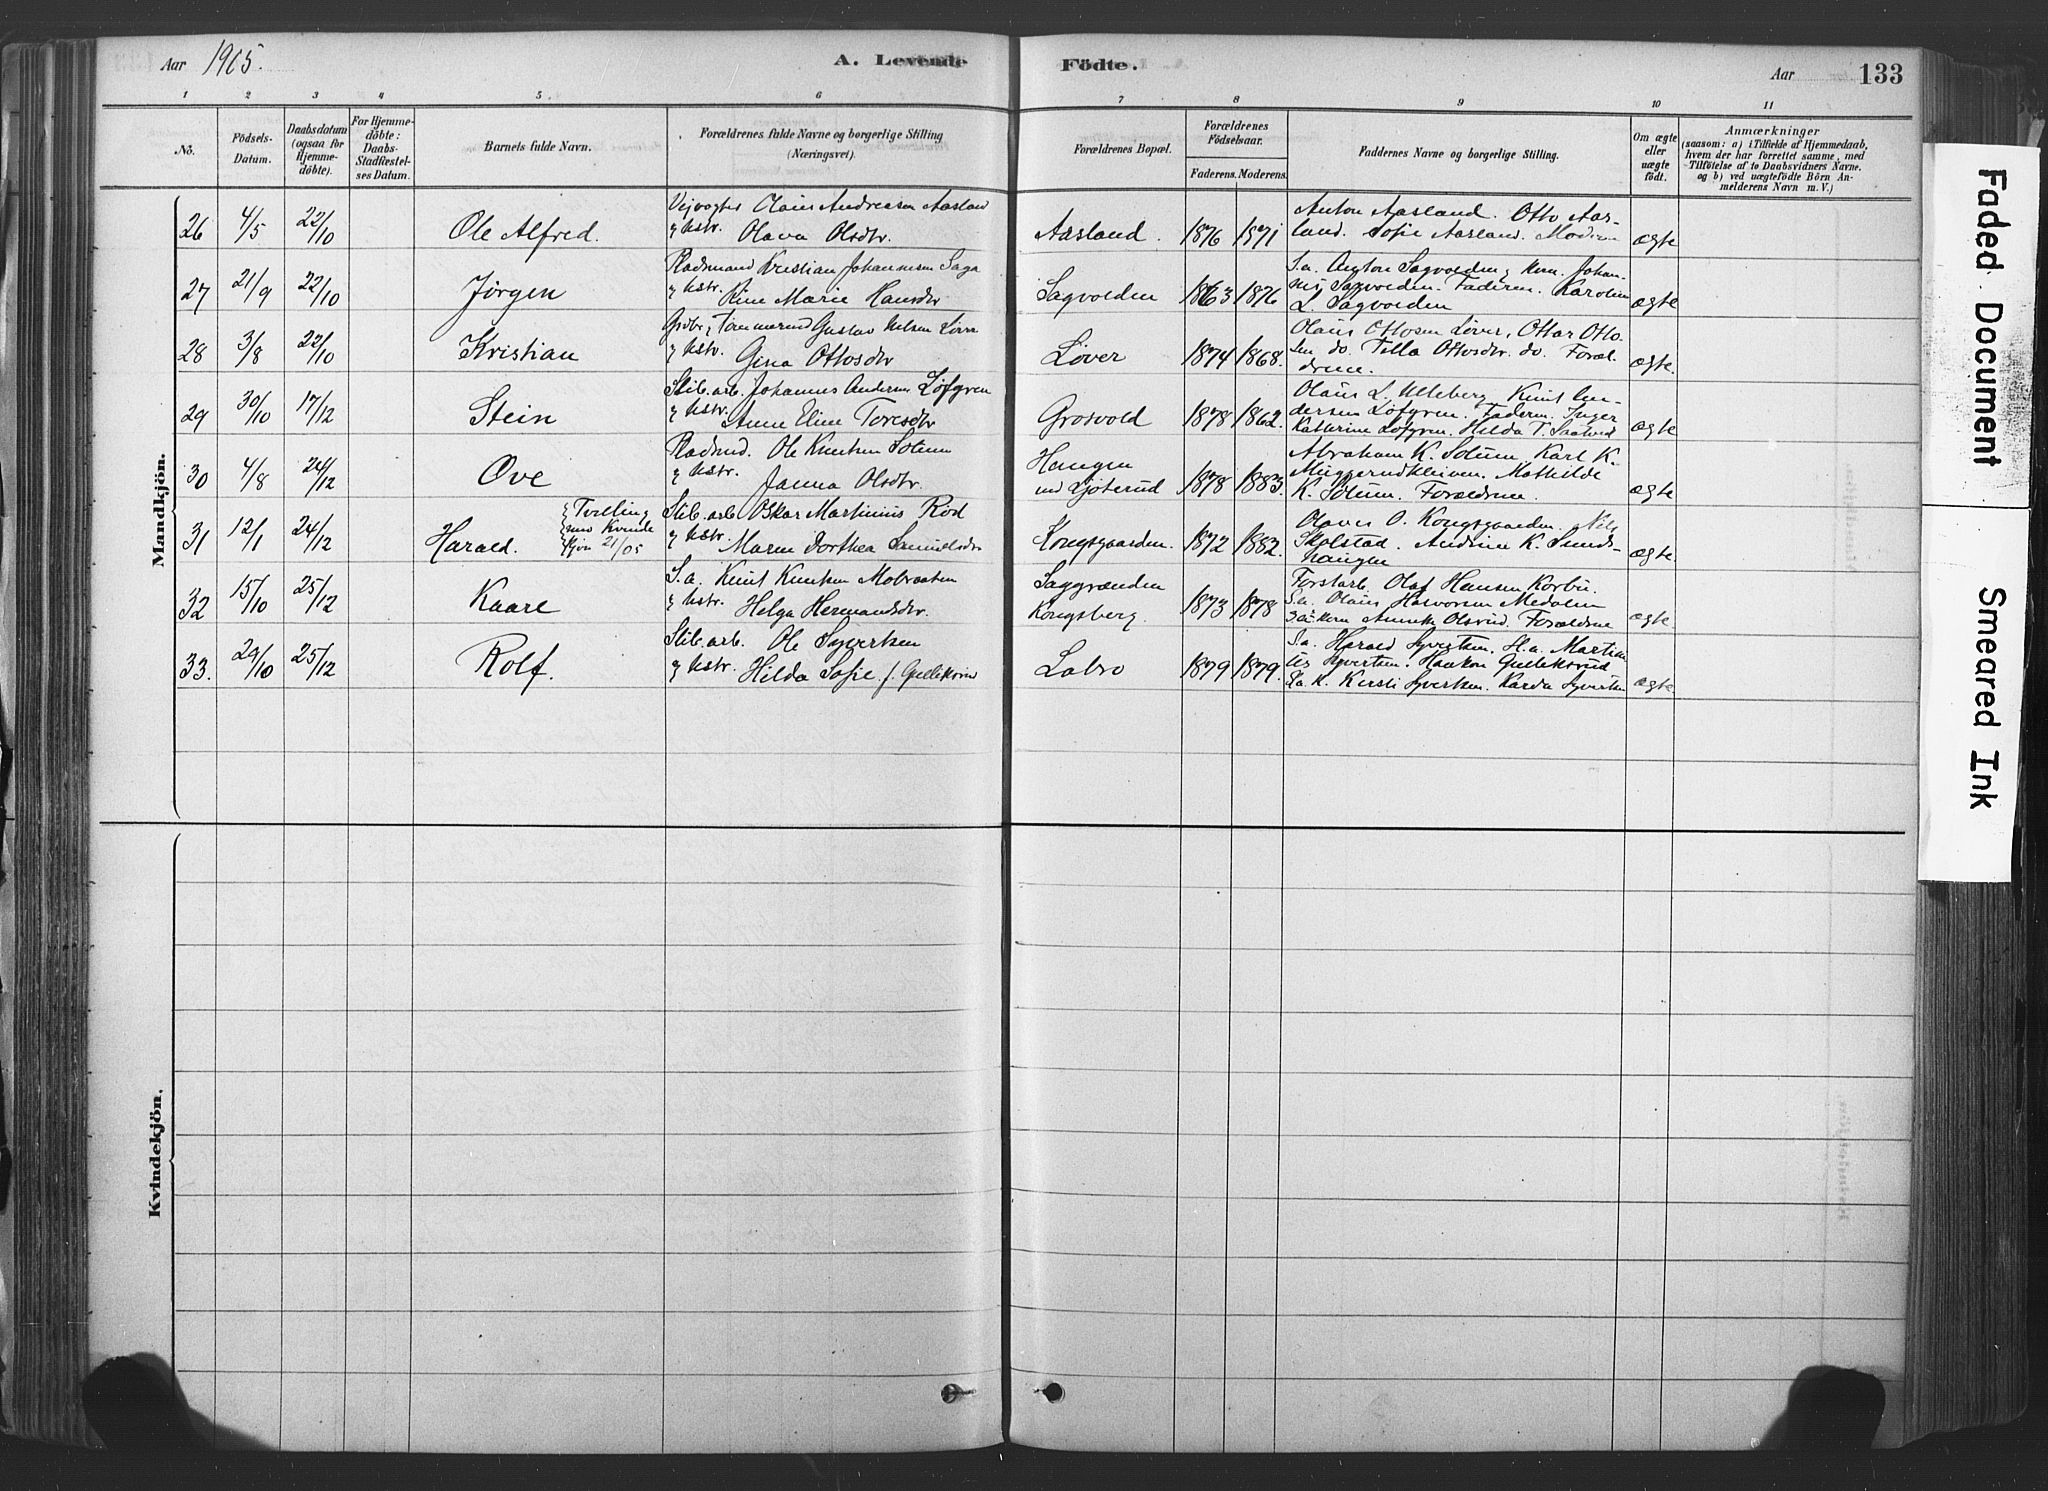 Aar 1905.
A. Levende
Födte.
Aar
133
1 2 3 4 5 6 7 8 9 10 11
Nö.
Födsels-
Datum.
Daabsdatum
(ogsaa for
Hjemme-
döbte).
For Hjemme-
döbte:
Daabs-
Stadfæstel-
ses Datum.
Barnets fulde Navn.
Forældrenes fulde Navne og borgerlige Stilling
(Næringsvei).
Forældrenes Bopæl.
Forældrenes
Födselsaar.
Faderens. Moderens.
Faddernes Navne og borgerlige Stilling.
Om ægte
eller
uægte
födt.
Anmærkninger
(saasom: a) i Tilfælde af Hjemmedaab,
hvem der har forrettet samme, med
Tilföielse af to Daabsvidners Navne.
og b) ved uægtefödte Börn An-
melderens Navn m. V.)
Mandkjön.
26 4/5 22/10 Ole Alfred.
Veivogter Olaus Andreasen Aasland
& hstr. Olava Olsdtr.
Aasland. 1876 1871
Anton Aasland. Otto Aas-
land. Sofie Aasland. Moderen
ægte
27 21/9 22/10 Jörgen
Pladsmand Kristian Johannesen Saga
& hstr. Line Marie Hansdtr
Sagvolden 1863 1876
S.a. Anton Sagvolden & kone. Johan-
nes Sagvolden. Faderen. Karoline
L. Sagvolden
ægte
28 3/8 22/10 Kristian
Grdbr & Tömmermd Gustav Nilsen Löver
& hstr. Gina Ottosdtr
Löver 1874 1868.
Olaus Ottosen Löver, Ottar Otto-
sen do. Tilla Ottosdtr. do. Foræl-
drene.
ægte.
29 30/10 17/12 Stein
Stib. arb. Johannes Andersen Löfgren
& hstr. Anne Eline Toresdtr
Grosvold 1878 1862.
Olaus L. Ulleberg. Knut An-
dersen Löfgren. Faderen. Inger
Kathrine Löfgren. Hilda T.
ægte
30 4/8 24/12 Ove
Pladsmd. Ole Knutsen Solum
& hstr. Janna Olsdtr.
Haugen
und Ljöterud 1878 1883.
Abraham K. Solum. Karl K.
Muggerudkleiven. Mathilde
K. Solum. Forældrene.
ægte
31 12/1 24/12 Harald.
Tvilling
med Kvinde
kjön 21/05
Stib. arb. Oskar Martinius Röd
& hstr. Maren Dorthea Samuelsdtr
Kongsgaarden. 1872 1882.
Olaves O. Kongsgaarden. Nils
Skolstad. Andrine K. Sunds-
haugen
ægte
32 15/10 25/12 Kaare
S.a. Knut Knutsen Mobraaten
& hstr. Helga Hermandsdtr.
Saggrænden
Kongsberg. 1873 1878
Forstarb. Olaf Hansen Korbu.
S.a. Olaus Halvorsen Medalen
Annette Olsrud. Forældrene
ægte
33. 29/10 25/12 Rolf.
Stib. arb. Ole Syvertsen
& hstr. Hilda Sofie f. Gulleksrud
Labro 1879 1879.
S.a. Harald Syvertsen. S.a. Martin-
ius Syvertsen. Haakon Gulleksrud
Kirsti Syvertsen. Karda Syvertsen
ægte
Kvindekjön.
Faded Document Smeared Ink